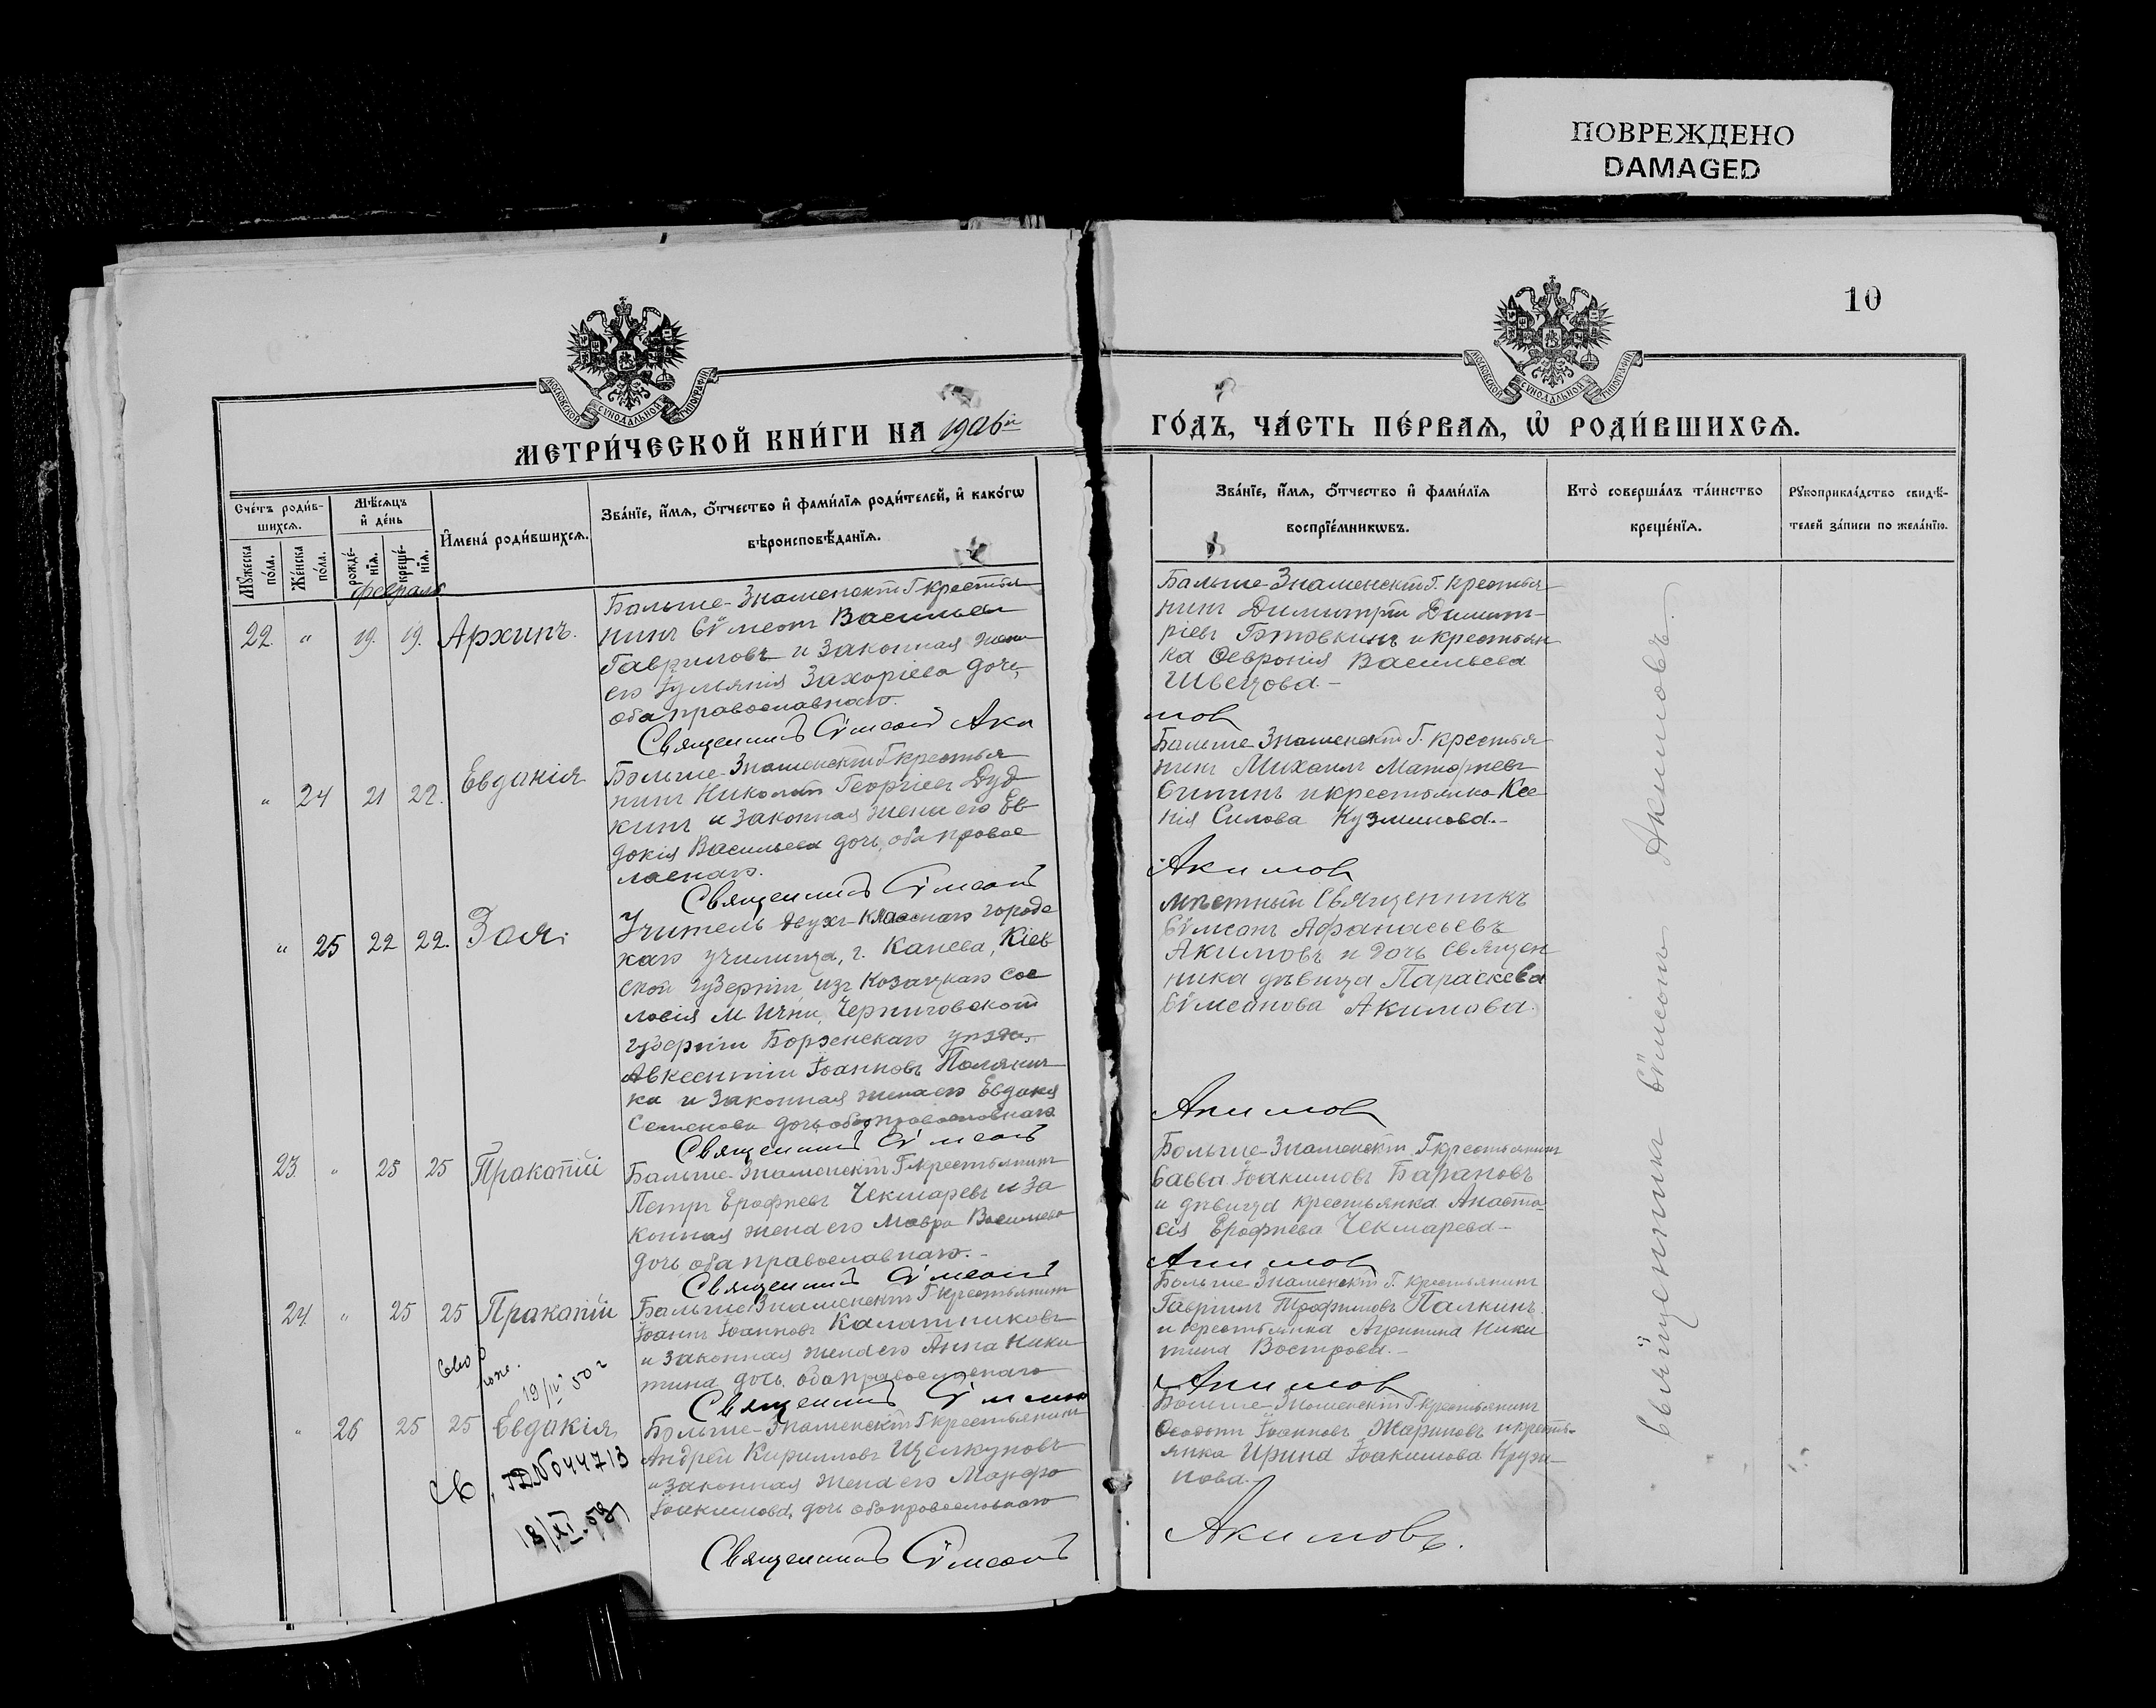 ПОВРЕЖДЕНО
DAMAGED
10
МОСКОВСКОЙ СУНОДАЛЬНОЙ ТИПОГРАФІИ
МОСКОВСКОЙ СУНОДАЛЬНОЙ ТИПОГРАФІИ
МЕТРИ́ЧЕСКОЙ КНИ́ГИ НА 1906й ГО́ДЪ, ЧА́СТЬ ПЕ́РВАЯ, Ѡ РОДИ́ВШИХСЯ.
Сче́тъ роди́в-
шихся.
Мꙋ́жеска по́ла.
Же́нска по́ла.
Мѣ́сяцъ и де́нь
рожде́-нїя.
креще́-нїя.
Имена́ роди́вшихся.
Зва́нїе, и́мя, о́тчество и фами́лїя роди́телей, и како́гѡ
вѣроисповѣ́данїя.
Зва́нїе, и́мя, о́тчество и фами́лїя
воспрїе́мникѡвъ.
Кто̀ соверша́лъ та́инство
креще́нїя.
Рꙋкоприкла́дство свидѣ́-
телей за́писи по жела́нїю.
февраль
22. " 19. 19. Архипъ.
Больше-Знаменскій крестья
нинъ Сѵмеонъ Васильевъ
Гавриловъ и законная жена
его Іульянія Захоріева дочь,
оба православнаго.
Священникъ Сѵмеонъ Аки
Больше-Знаменскій крестья
нинъ Димитрій Димит-
ріевъ Готовкинъ и крестьян
ка Февронія Васильева
Швецова.-
мовъ
" 24 21 22. Евдокія
Больше-Знаменскій крестья
нинъ Николай Георгіевъ Дуд
кинъ и законная жена его Ев
докія Васильева дочь, оба правос
лавнаго.
Священникъ Сѵмеонъ
Больше-Знаменскій крестья
нинъ Михаилъ Матѳеевъ
и крестьянка Ксе
нія Силова Кузминова.-
Акимовъ
" 25 22 22. Зоя.
Учитель двухъ-класснаго город
скаго училища, г. Канева, Кіев
ской губерніи, изъ Козацкаго сос
ловія м Ични, Черниговской
губерніи Борзенскаго уѣзда,
Авксентій Іоанновъ
ка и законная жена его Евдокія
Семенова дочь, оба православнаго
Священникъ Сѵмеонъ
мѣстный Священникъ
Сѵмеонъ Афанасьевъ
Акимовъ и дочь Священ
ника дѣвица Параскева
Сѵмеонова Акимова.
Акимовъ
23. " 25 25 Прокопій
Больше-Знаменскій крестьянинъ
Петръ Ерофѣевъ Чекмаревъ и за
конная жена его Мавра Васильева
дочь оба православнаго.-
Священникъ Сѵмеонъ
Больше-Знаменскій крестьянинъ
Савва Іоакимовъ Барановъ
и дѣвица крестьянка Анаста-
сія Ерофѣева Чекмарева-
Акимовъ
24. " 25 25 Прокопій
Больше-Знаменскій крестьянинъ
Іоаннъ Іоанновъ Калашниковъ
и законная жена его Анна Ники
тина дочь, оба православнаго
Священникъ Сѵмеонъ
Больше-Знаменскій крестьянинъ
Гавріилъ Трофимовъ Палкинъ
и крестьянка Агрипина Ники
тина Вострова.-
Акимовъ
19/IV 50 г
" 26 25 25 Евдокія
Больше-Знаменскій крестьянинъ
Андрей Кирилловъ Щелкуновъ
и законная жена его Марфа
Іоакимова, дочь оба православнаго
Священникъ Сѵмеонъ
Больше-Знаменскій крестьянинъ
Ѳеодотъ Іоанновъ Жариновъ и кресть-
янка Ирина Іоакимова
нова.-
Акимовъ.
№ 044713
18/XI-58
Священникъ Сѵмеонъ Акимовъ.